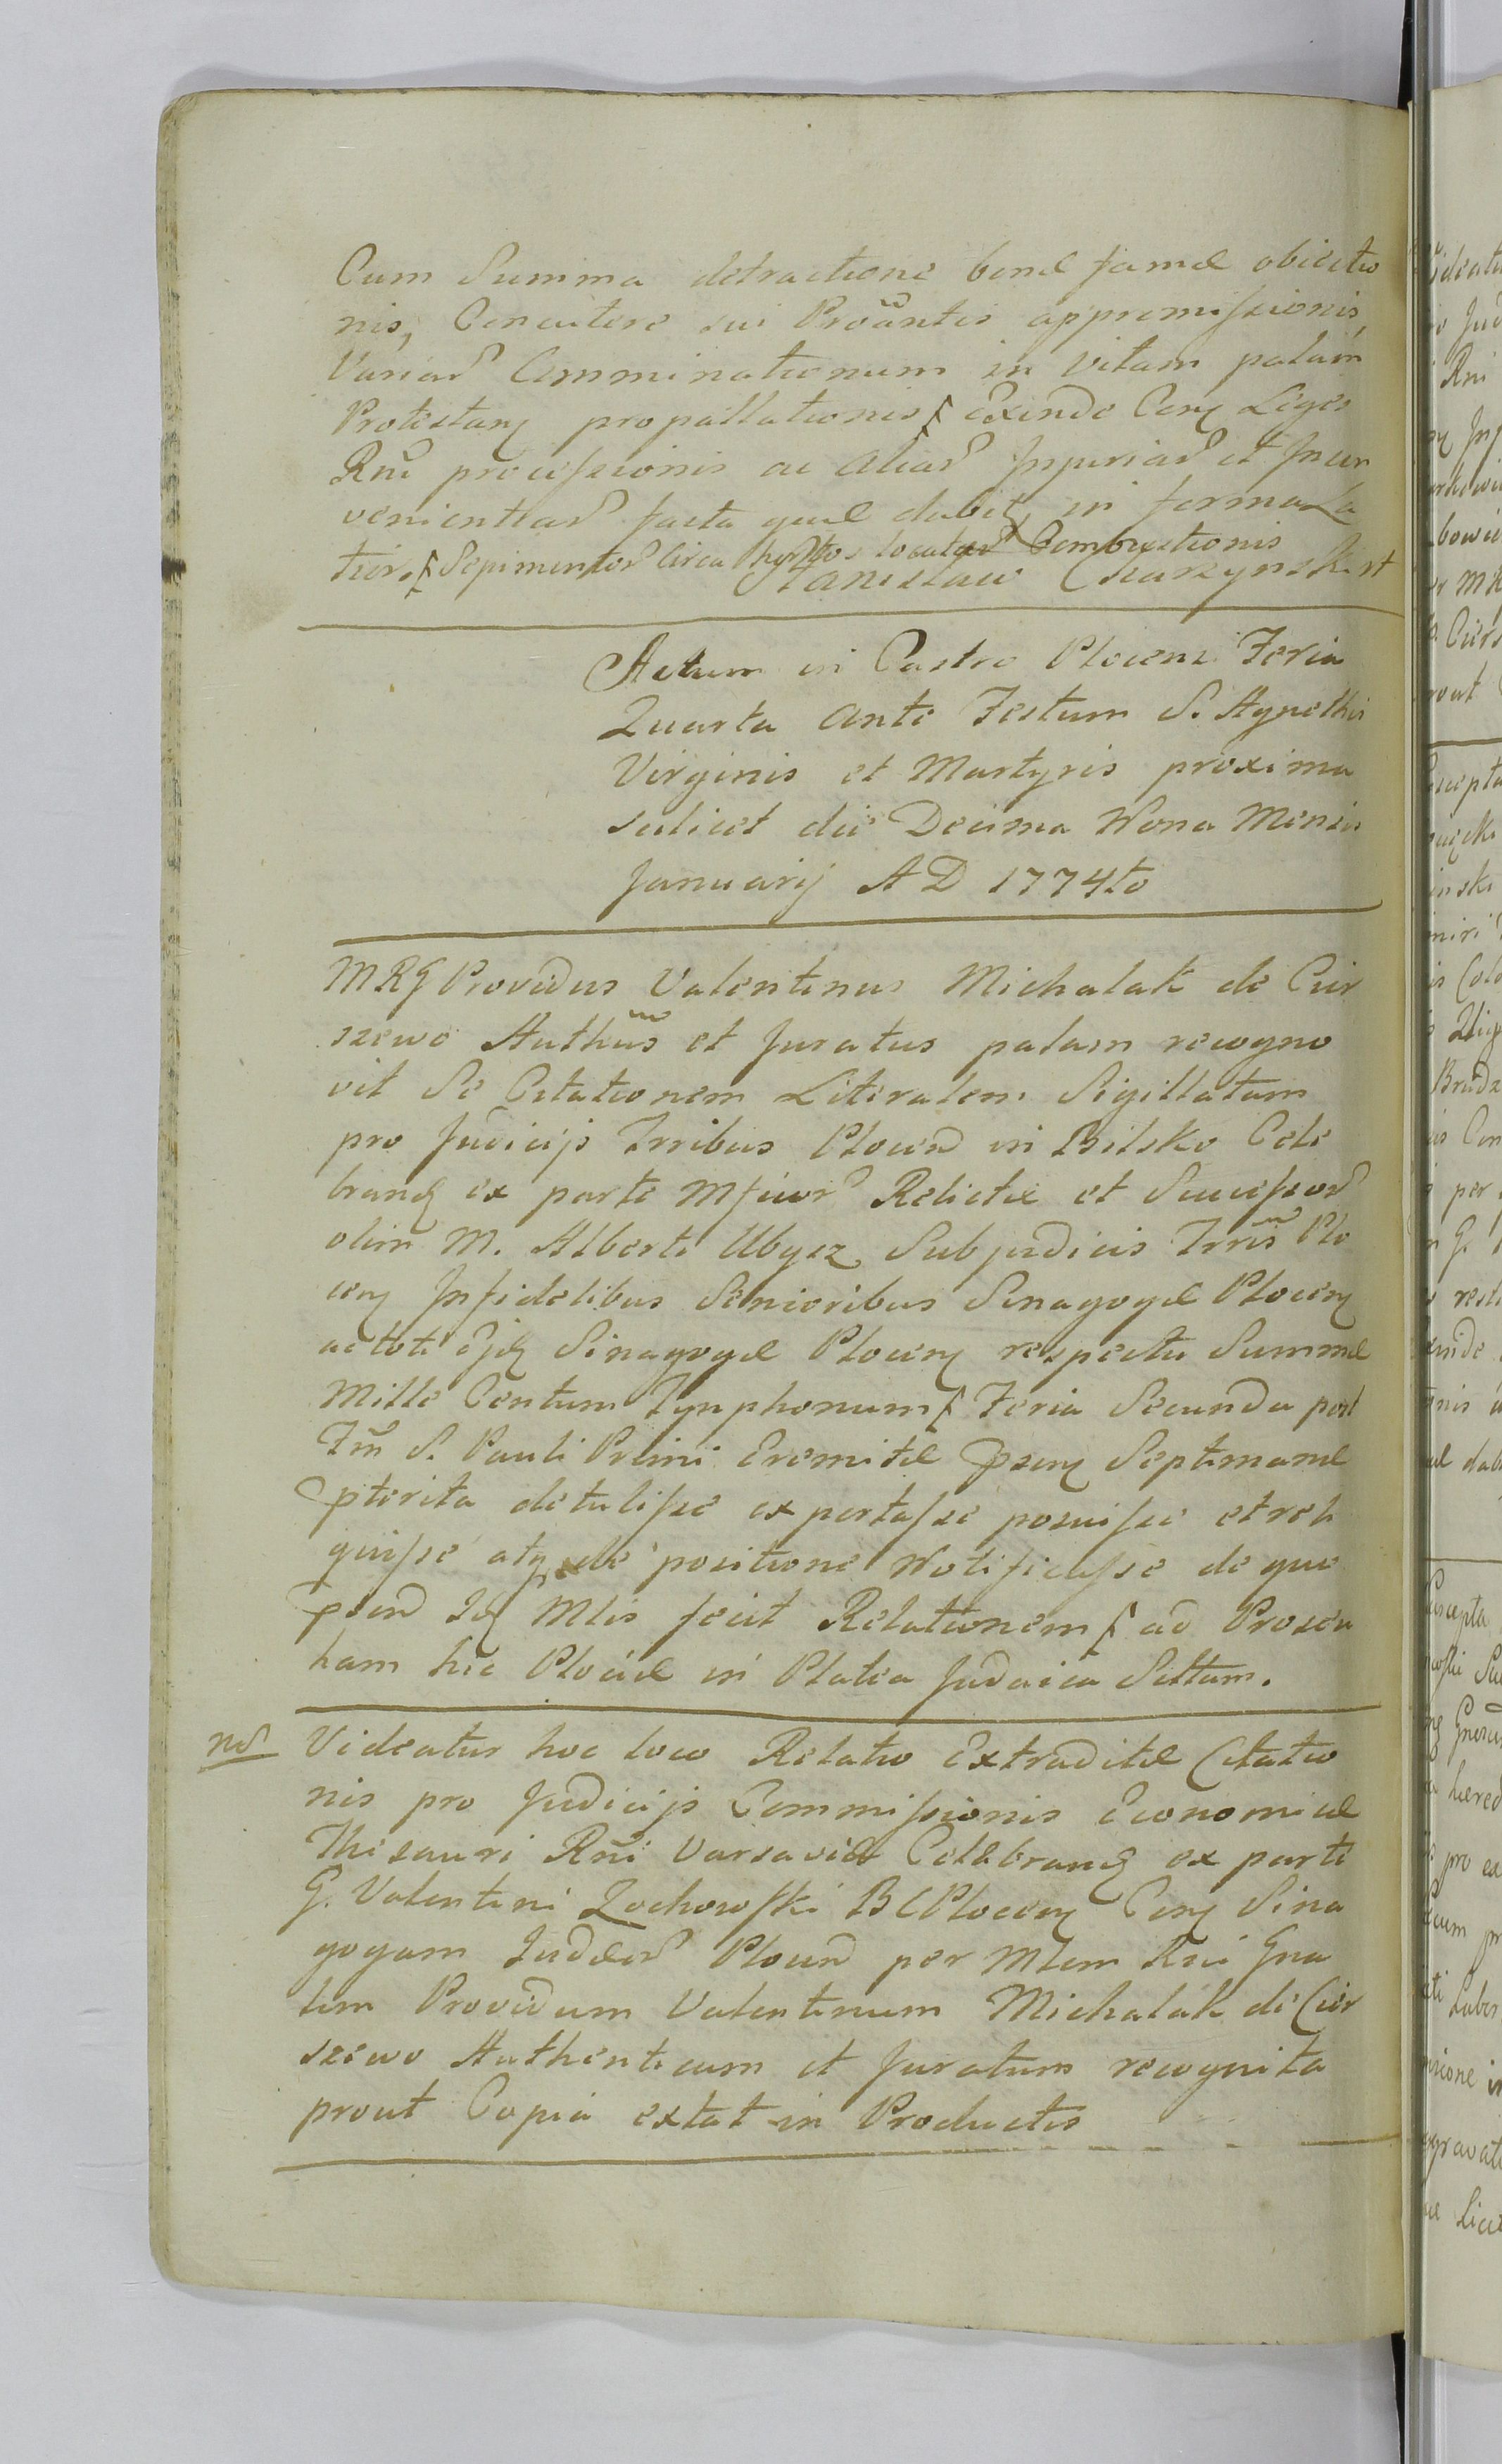 Cum Summa detractione bonæ famæ obiectio
nis, Concutere sui Proãntis appromissionis,
Variar Comminationum in Vitam palam
Protestanꝫ propallationis ⌈ Exinde Conꝫ Leges
Rñi processionis ac aliar Injuriar et Incon
venientiar facta quæ dabiꝫ in forma La
tior. ⌈ Sepimentor Circa hortos locator Combustionis
Stanislaw
Actum in Castro Plocensi Feria
Quarta ante Festum S. Agnethis
Virginis et Martyris proxima
scilicet die Decima Nona Mensis
Januarij A D 1774to
MRG Providus Valentinus Michalak de Cier
szewo Authũs et Juratus palam recogno
vit Se Citationem Literalem Sigillatam
pro Judicijs Trribus Plocen in Bilsko Cele
brandꝫ ex parte Mficor Relictæ et Successor
olim M. Alberti Ubysz Subjudicis Trris Plo
cenꝫ Infidelibus Senioribus Sinagogæ Plocenꝫ
ac toti ejdꝫ Sinagogæ Plocenꝫ respectu Summæ
Mille Centum Tynphonum ⌈ Feria Secunda post
Fm S. Pauli Primi Eremitæ psenꝫ Septimanæ
pterita detulisse exportasse posuisse et reli
quisse atqꝫ de positione Notificasse de quo
psend Idꝫ Mlis fecit Relationem ⌈ ad Proseu
ham hic Plociæ in Platea Judaica Sittam.
nd Videatur hoc loco Relatio Extraditæ Citatio
nis pro Judicijs Commissionis Economicæ
Thesauri Rñi Varsaviæ Celebrandꝫ ex parte
G. Valentini Zochowski B C Plocenꝫ Conꝫ Sina
gogam Judæor Plocen per Mlem Rñi Gna
lem Providum Valentinum Michalak de Cier
szewo Authenticum et Juratum recognita
prout Copia extat in Productis